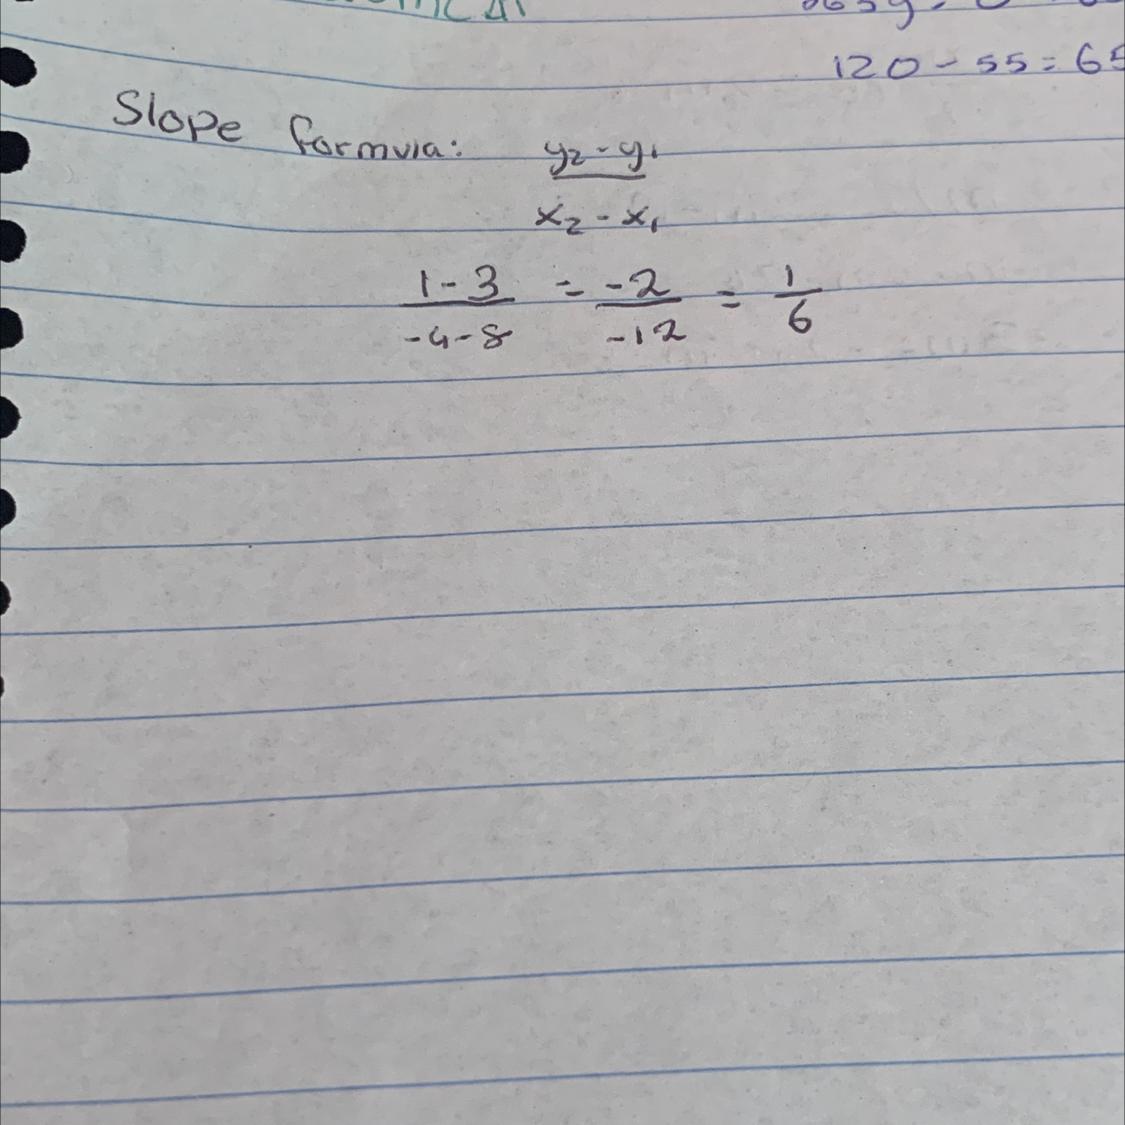 120 - 55 = 65
Slope formula: y₂ - y₁
x₂ - x₁
1 - 3 = -2 = 1
-4 - 8 -12 6